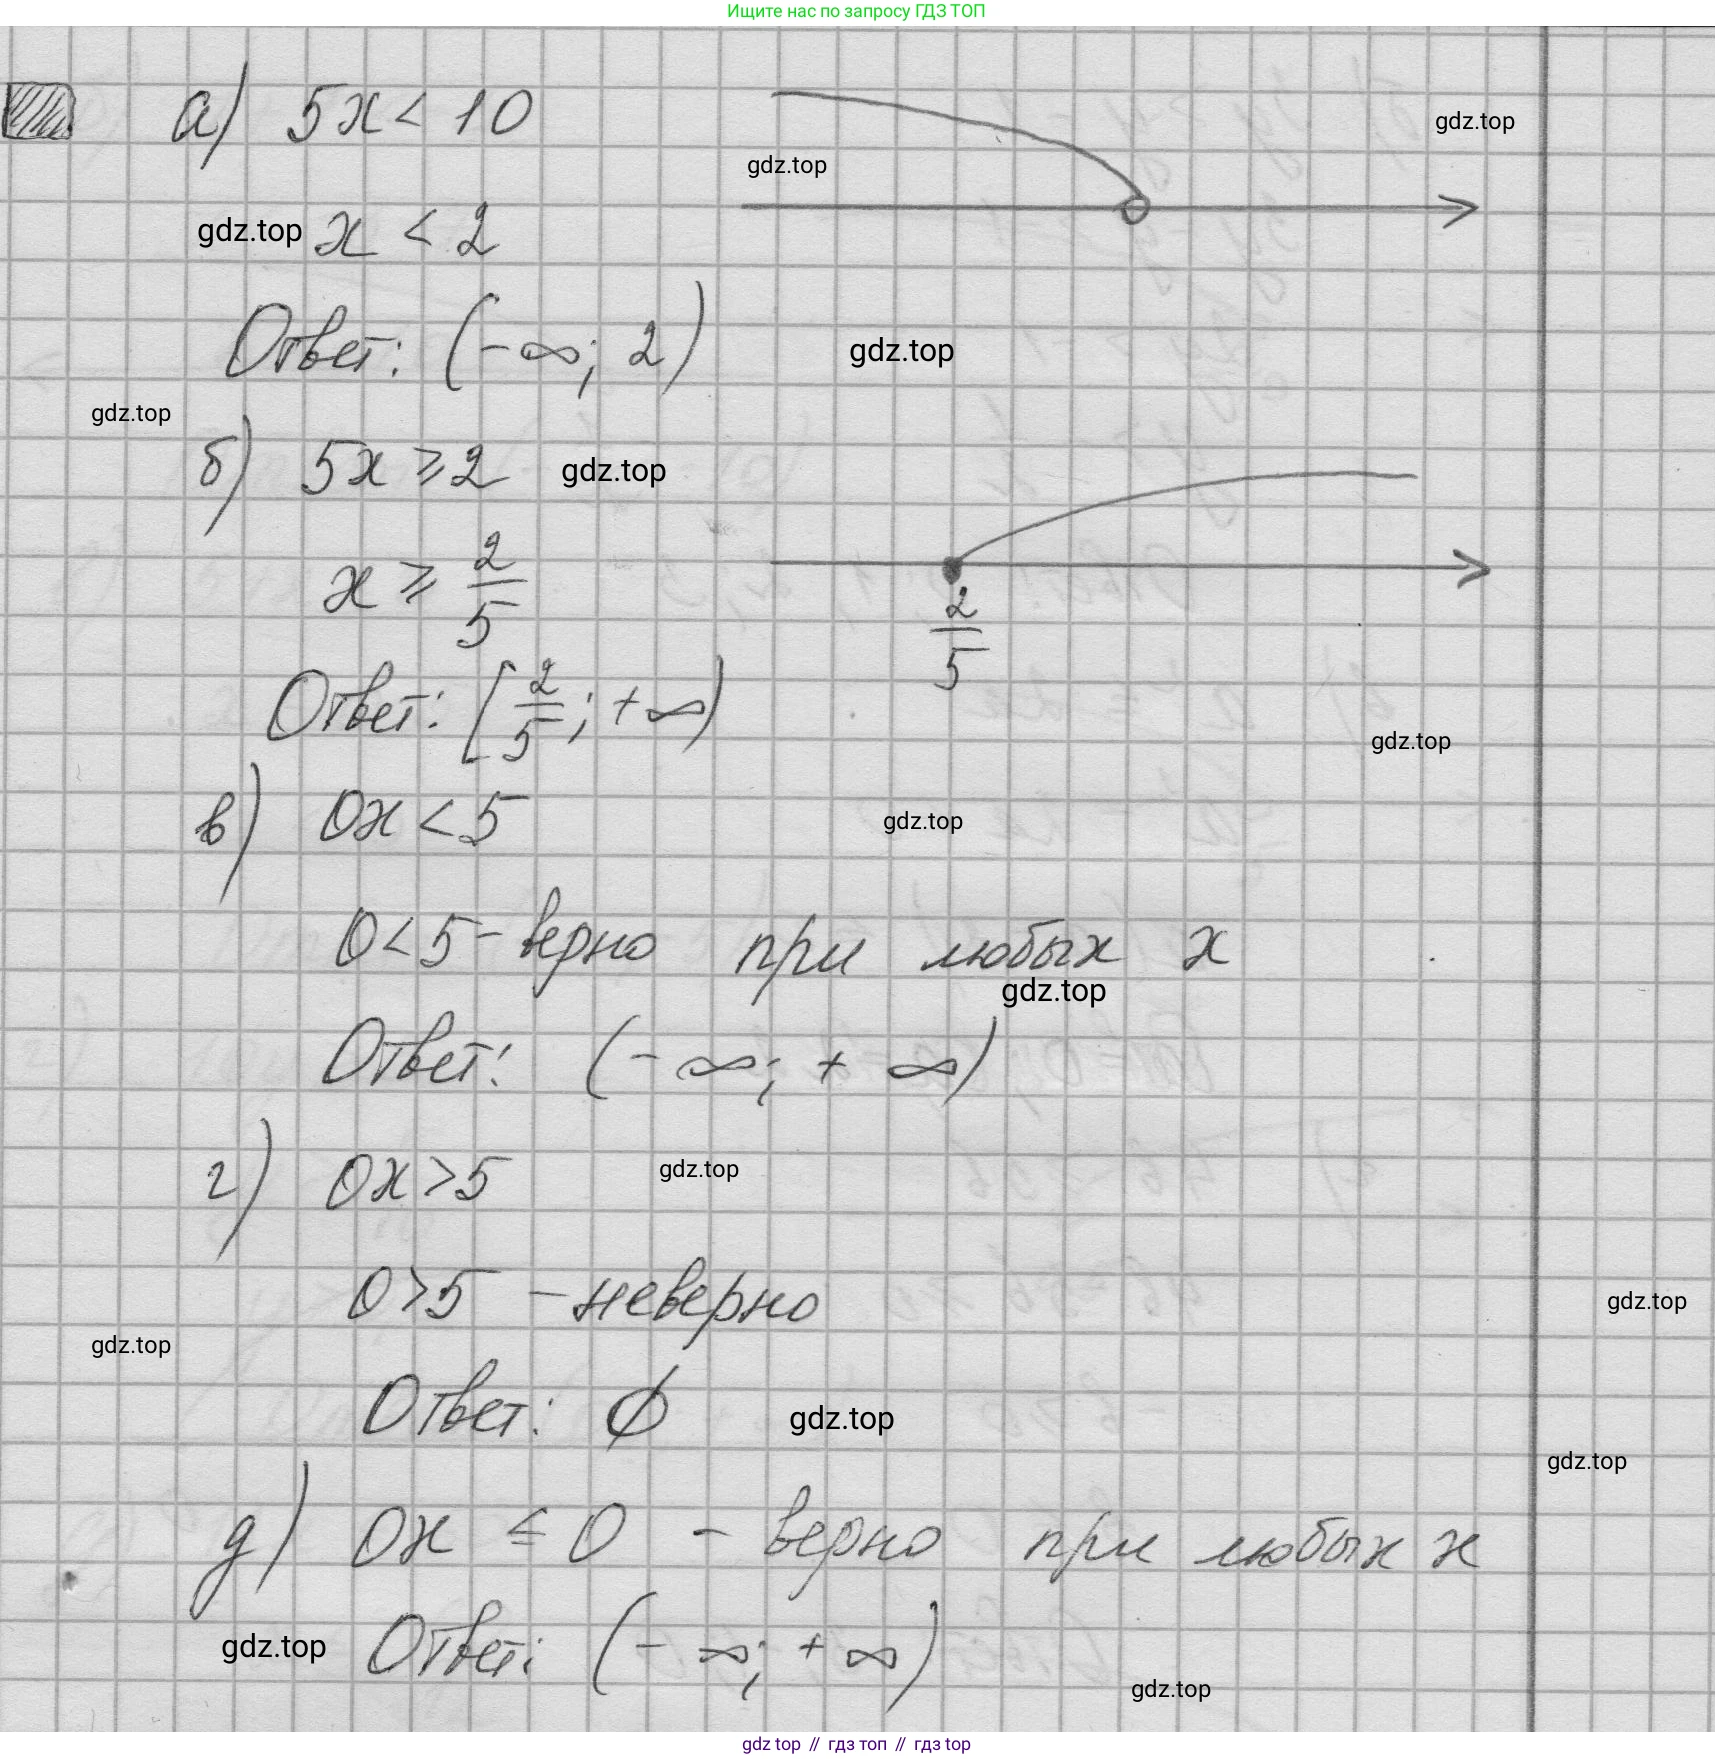 Ищите нас по запросу ГДЗ ТОП
а) 5x < 10
gdz.top
gdz.top
gdz.top x < 2
Ответ: (-∞; 2)
gdz.top
gdz.top
б) 5x ⩾ 2 gdz.top
x ⩾ 2/5
2/5
Ответ: [2/5; +∞)
gdz.top
в) 0x < 5
gdz.top
0 < 5 - верно при любых x
gdz.top
Ответ: (-∞; +∞)
г) 0x > 5
gdz.top
0 > 5 - неверно
gdz.top
gdz.top
Ответ: ∅
gdz.top
gdz.top
д) 0x ≤ 0 - верно при любых x
gdz.top Ответ: (-∞; +∞)
gdz.top
gdz top // гдз топ // гдз top